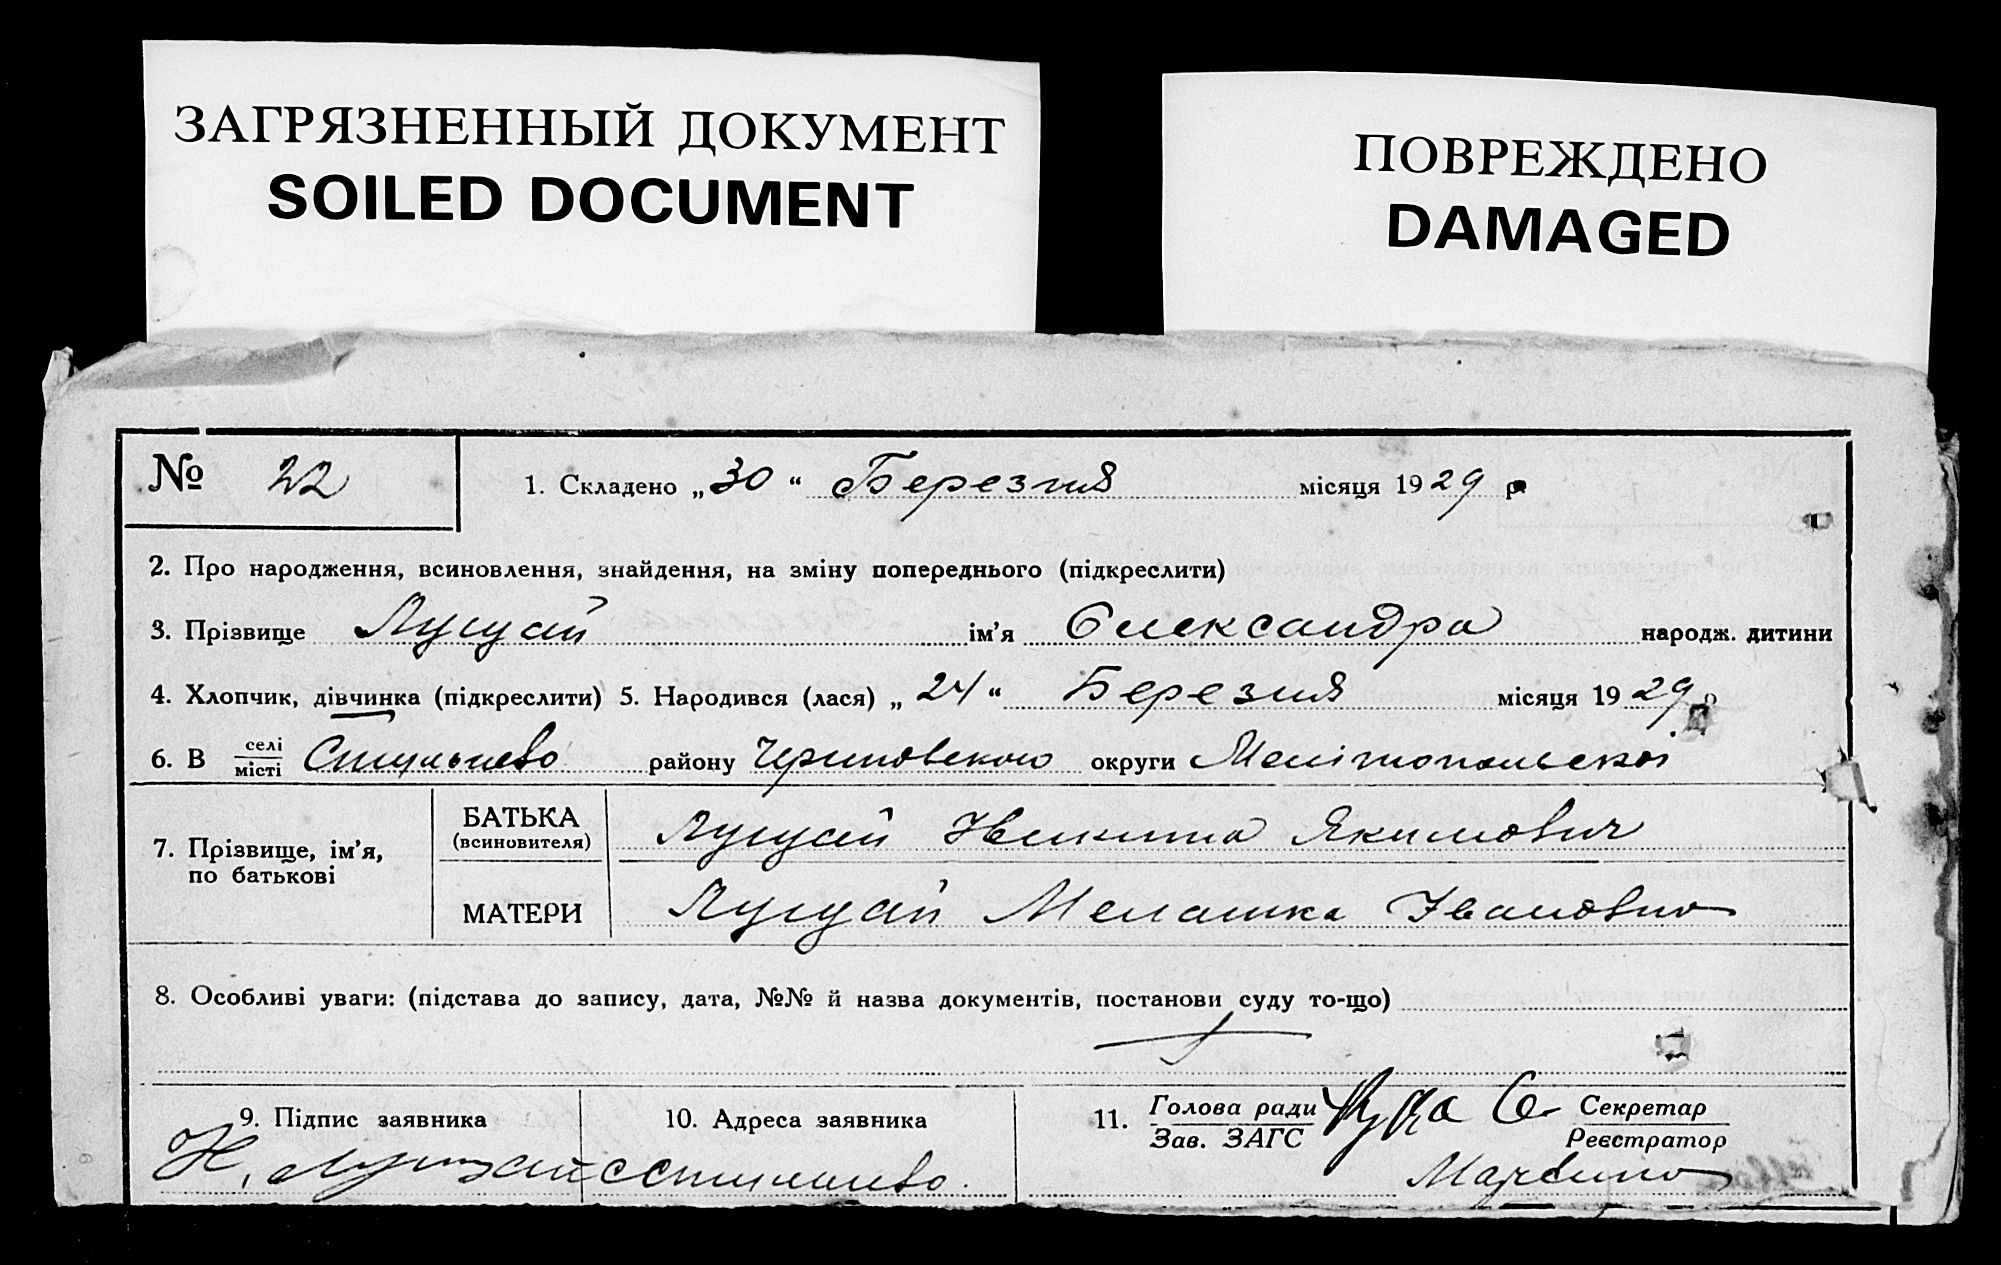 ЗАГРЯЗНЕННЫЙ ДОКУМЕНТ
SOILED DOCUMENT
ПОВРЕЖДЕНО
DAMAGED
№ 22
1. Складено „30“ Березня місяця 1929 р.
2. Про народження, всиновлення, знайдення, на зміну попереднього (підкреслити)
3. Прізвище Луцай ім'я Олександра народж. дитини
4. Хлопчик, дівчинка (підкреслити) 5. Народився (лася) „24“ Березня місяця 1929 р
6. В селі
місті
району округи Мелітопольської
7. Прізвище, ім'я,
по батькові
БАТЬКА
(всиновителя)
Луцай Никита Якимович
МАТЕРИ
Луцай Мелашка Івановна
8. Особливі уваги: (підстава до запису, дата, №№ й назва документів, постанови суду то-що)
9. Підпис заявника
Н. Луцай
10. Адреса заявника
11. Голова ради
Зав. ЗАГС
Секретар
Реєстратор